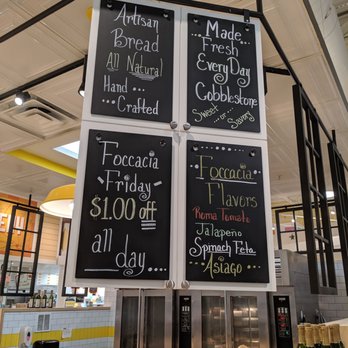 Artisan
Bread
All Natural
Hand
Crafted
Made
Fresh
EveryDay
Cobblestone
Sweet or
Savory
Foccacia
Friday
$1.00 off
all
day
Foccacia
Flavors
Roma Tomato
Jalapeño
Spinach Feta
Asiago